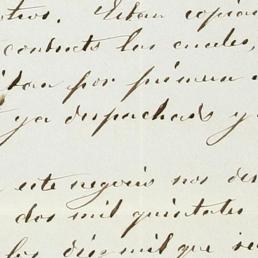 tros. Estan copia
contrato las cuales,
itan por primera
ya despachado y
este negocio nos de
dos mil quintales
los diez mil que se